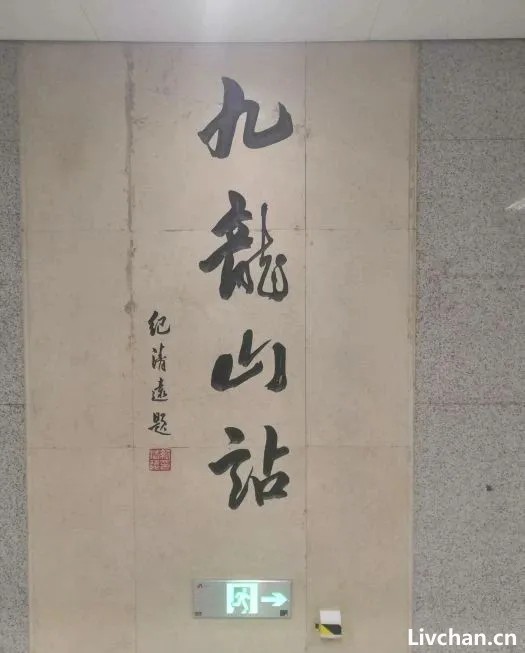 九龍山站
紀清遠題
Livchan.cn